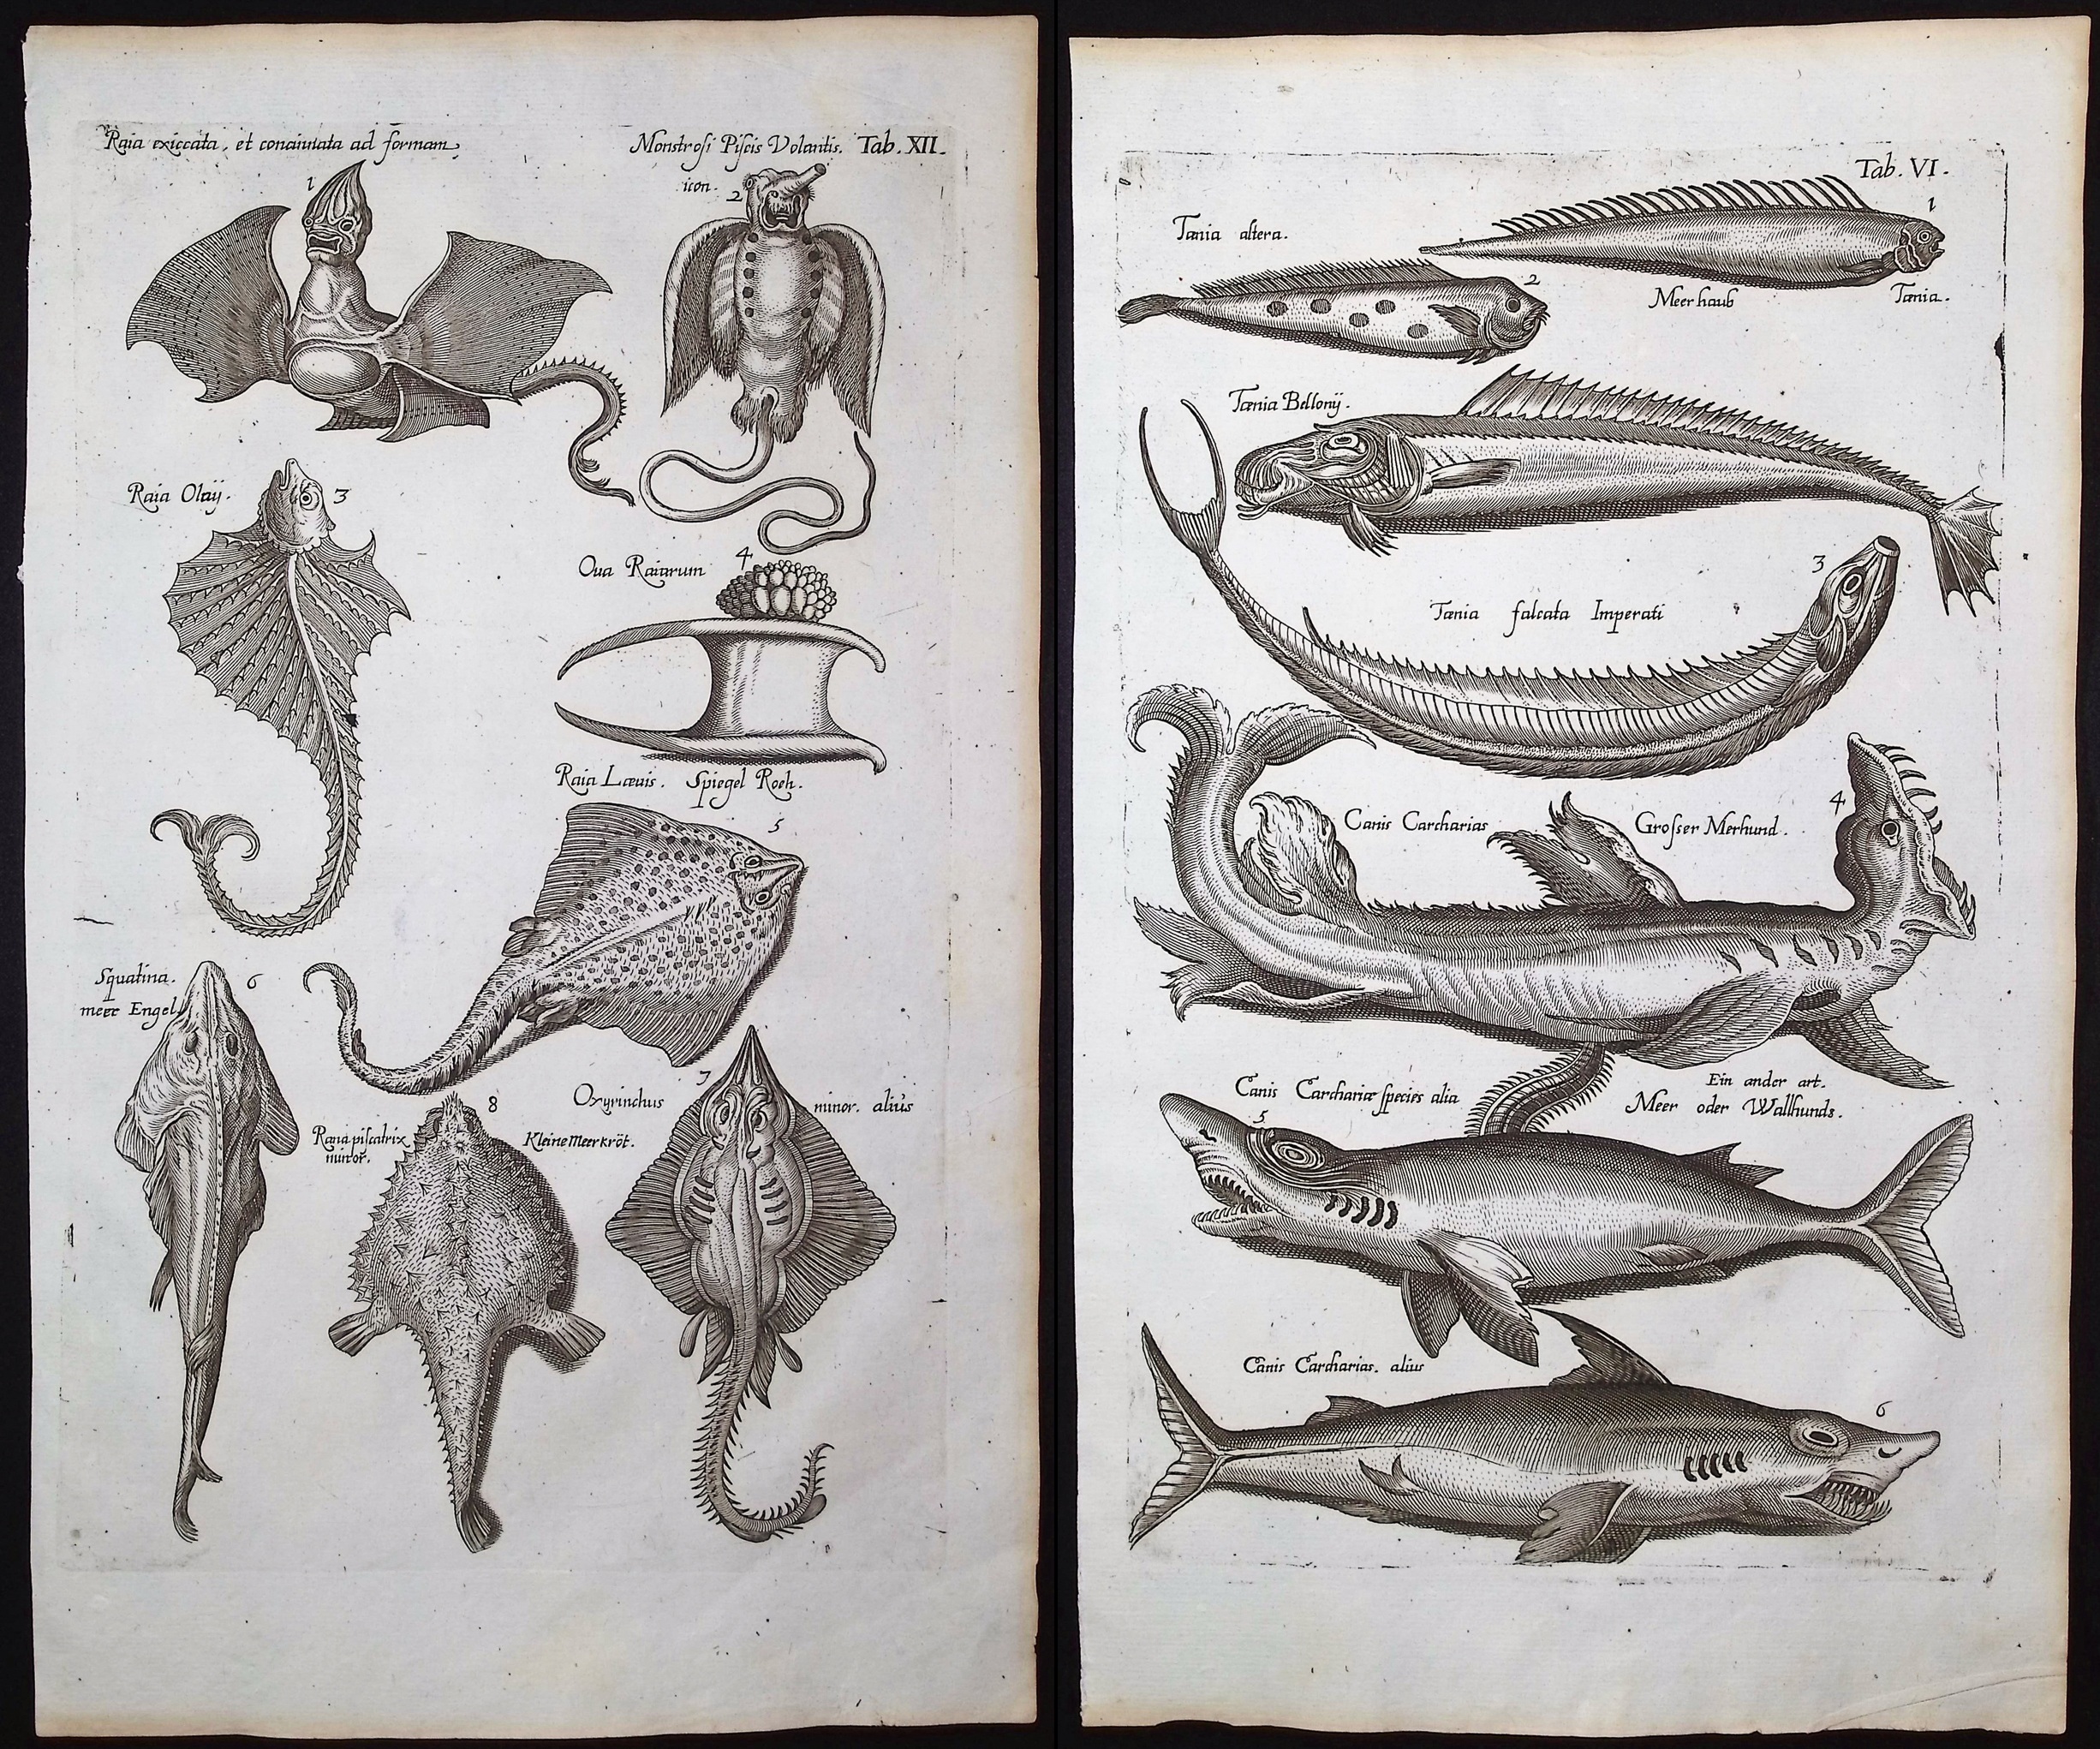 Raia exiccata, et concinnata ad formam
Monstrosi Piscis Volantis. Tab. XII.
icon.
1
2
Raia Olaij.
3
Oua Raiarum
4
Raia Lævis. Spiegel Roch.
5
Squatina.
meer Engel
6
Oxyrinchus
7
minor. alius
Rana piscatrix
minor.
8
Kleine Meerkröt.
Tab. VI.
1
Tænia altera.
2
Meerhaub
Tænia.
Tænia Bellonij.
3
Tænia falcata Imperati
4
Canis Carcharias
Grosser Merhund.
Canis Carchariæ species alia
Ein ander art.
Meer oder Wallhunds.
5
Canis Carcharias. alius
6